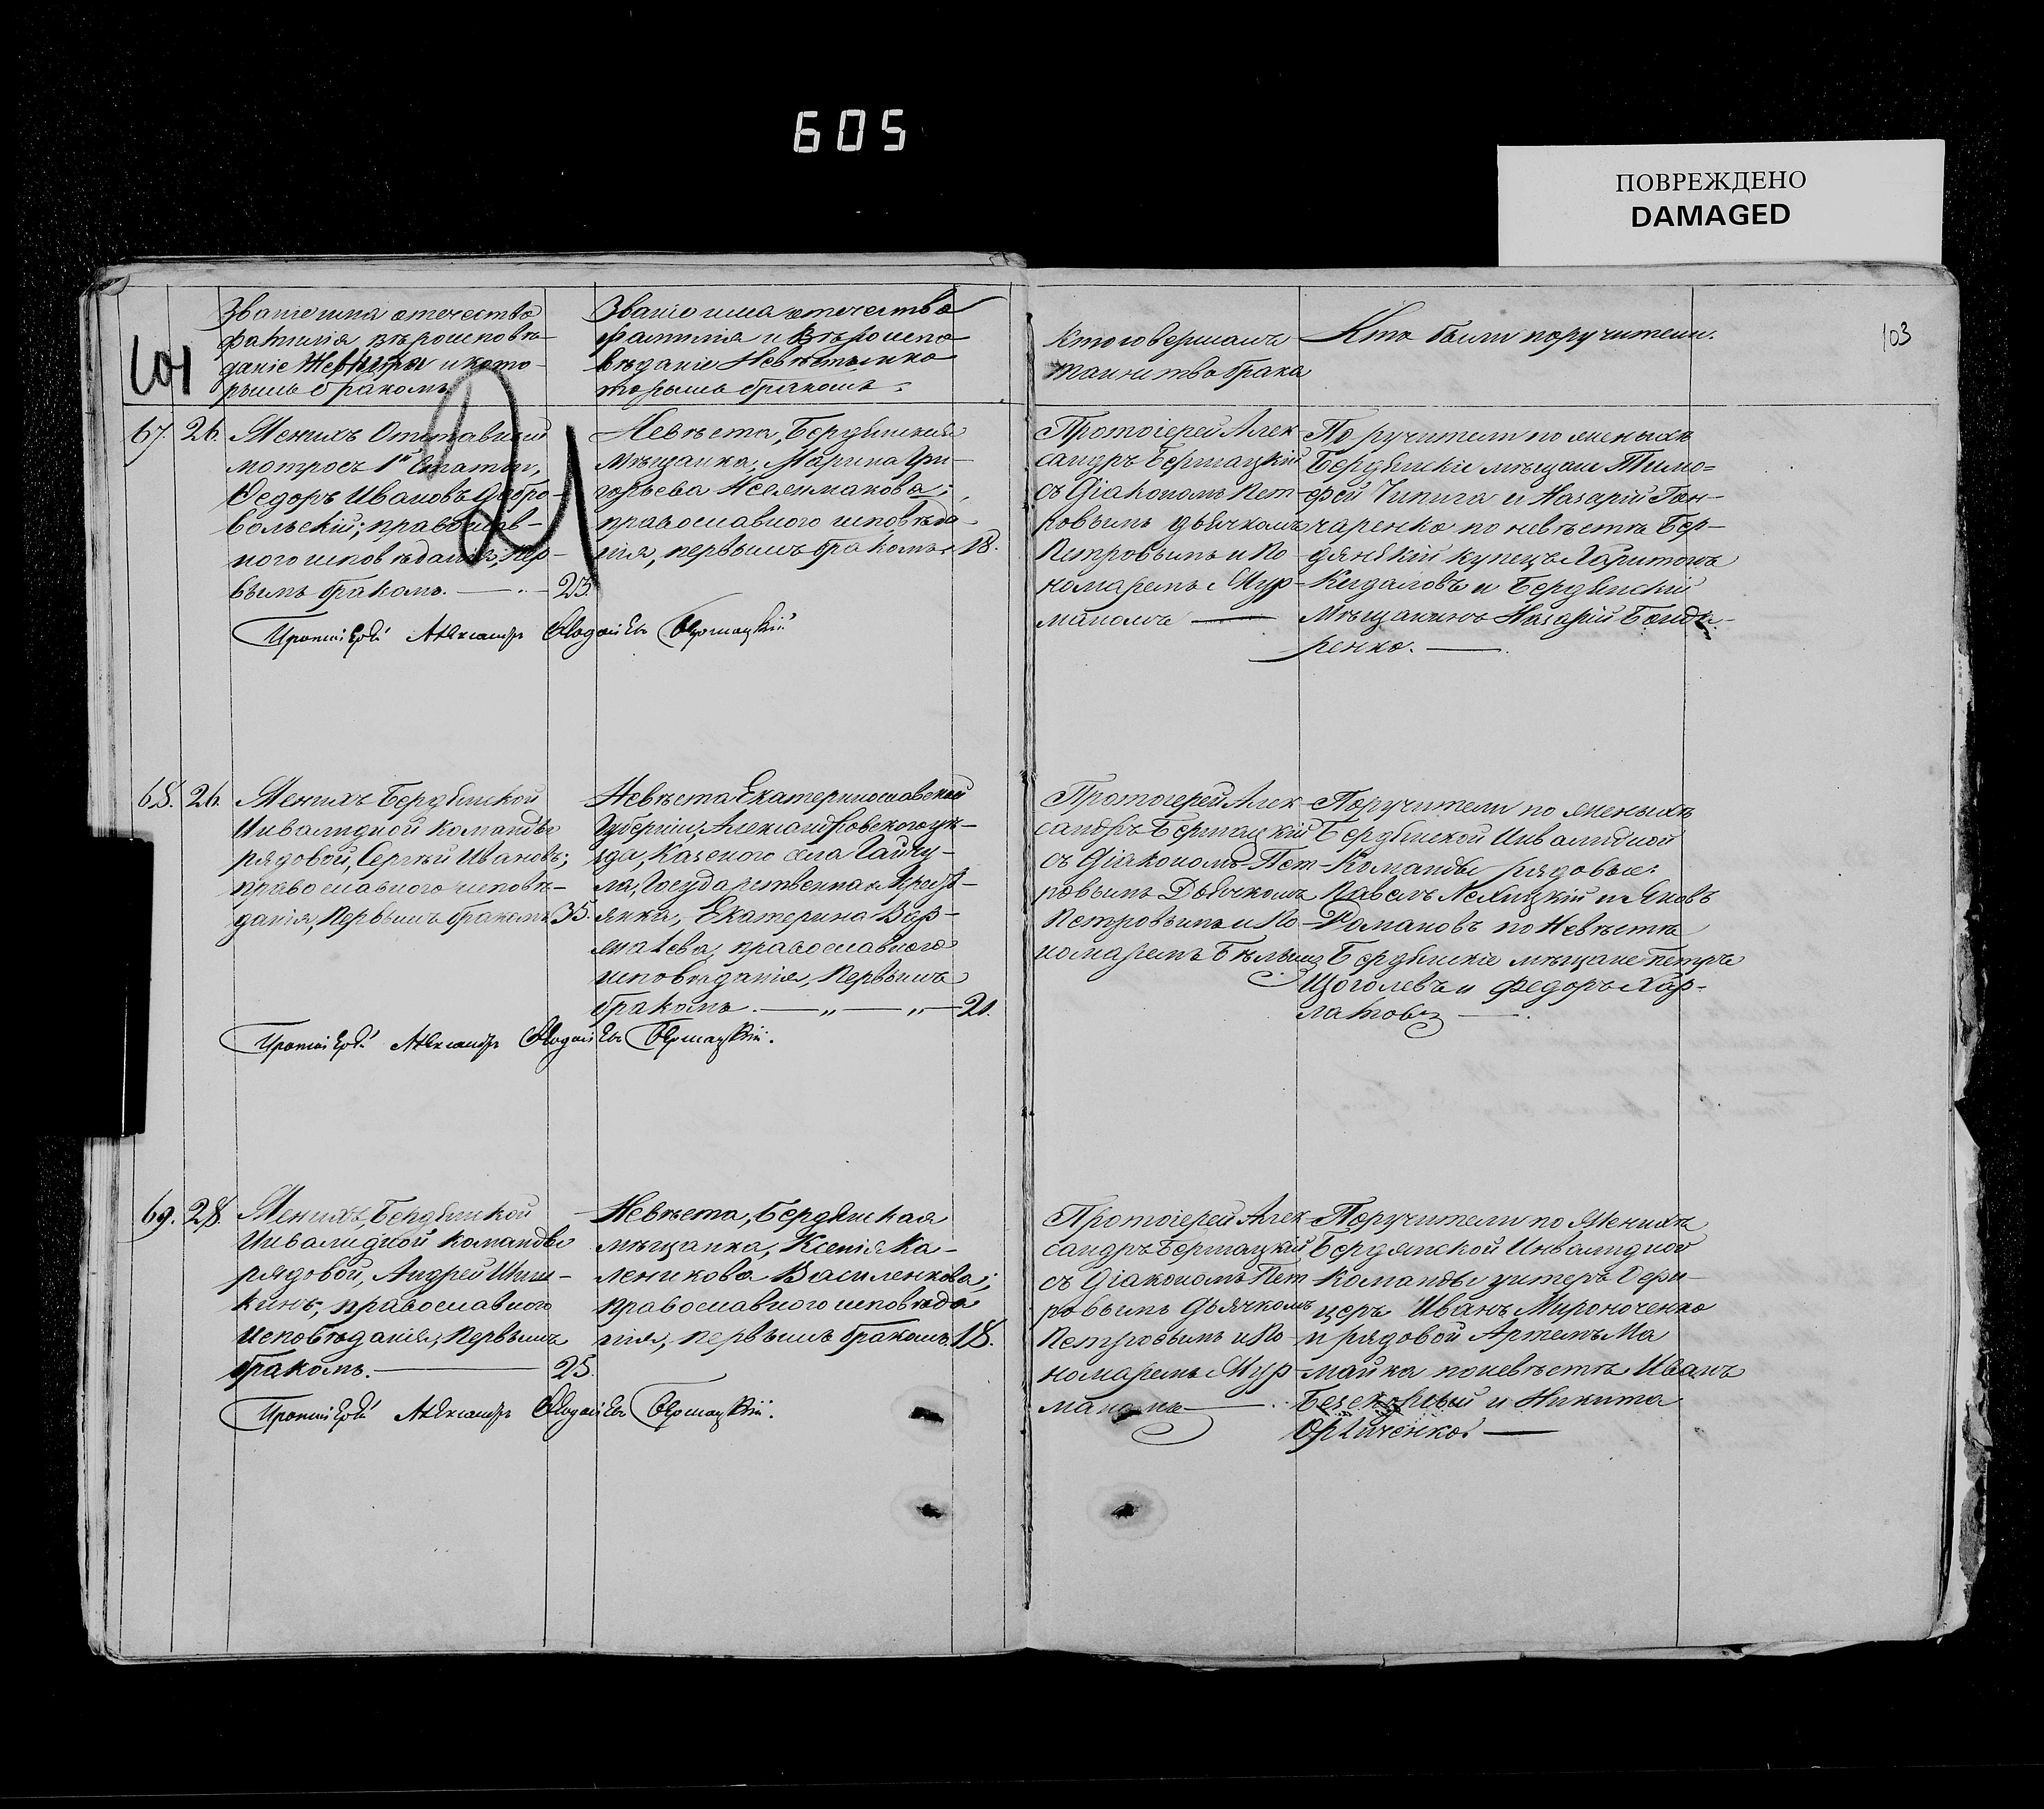 605
ПОВРЕЖДЕНО
DAMAGED
103
Званіе имя отечество
фамилія вѣроисповѣ-
даніе Жениха и кото-
рымъ бракомъ
Званіе имя отечество
фамилія и Вѣроиспо-
вѣданіе Невѣсты и ко
торымъ бракомъ.
Кто совершалъ
таинство брака
Кто были поручители.
67. 26.
Женихъ Отставный
матросъ 1й Статьи,
Федоръ Ивановъ Добро-
вольскій; православ-
ного исповѣданія, пер-
вымъ бракомъ. — 25.
Невѣста, Бердянская
Мѣщанка, Марина Гри-
горьева
православного исповѣда-
нія, первымъ бракомъ. 18.
Протоіерей Алек-
сандръ Бершацкій
съ Діакономъ Пет-
ровымъ дьячкомъ
Петровымъ и По-
номаремъ Мур-
маномъ —
Поручители по женихѣ
Бердянскіе мѣщане Тимо=
фей Чипига и Назарій Гон-
чаренко по невѣстѣ Бер-
дянскій купецъ Харитонъ
Кидаловъ и Бердянскій
Мѣщанинъ Назарій Бонда-
ренко. —
Протоіерей Александръ Бершацкій
68. 26.
Женихъ Бердянской
Инвалидной Команды
рядовой, Сергѣй Ивановъ;
православного исповѣ-
данія, первымъ бракомъ 35.
Невѣста Екатеринославской
Губерніи, Александровского уѣ-
зда, Казеного села Гайчу-
ла, Государственная Кресть-
янка, Екатерина
православного
исповѣданія, первымъ
бракомъ. — „ — „ — 21.
Протоіерей Алек-
сандръ Бершацкій
съ Діакономъ Пет-
ровымъ Дьячкомъ
Петровымъ и По-
номаремъ Бѣлымъ
Поручители по женихѣ
Бердянской Инвалидной
Команды рядовые:
Павелъ и Яковъ
Романовъ по Невѣстѣ
Бердянскіе мѣщане Петръ
Щоголевъ и Федоръ Хар-
ламовъ —
Протоіерей Александръ Бершацкій.
69. 28.
Женихъ, Бердянской
Инвалидной Команды
рядовой, Андрей
православного
исповѣданія, первымъ
бракомъ. — 25.
Невѣста, Бердянская
мѣщанка, Ксенія Ка-
леникова Василенкова;
православного исповѣда
нія, первымъ бракомъ. 18.
Протоіерей Алек-
сандръ Бершацкій
съ Діакономъ Пет-
ровымъ дьячкомъ
Петровымъ и По-
номаремъ Мур-
маномъ —
Поручители по Женихѣ
Бердянской Инвалидной
Команды унтеръ Офи-
церъ Иванъ Мироноченко
и рядовой Артемъ Ма
майка по невѣстѣ Иванъ
и Никита
—
Протоіерей Александръ Бершацкій.